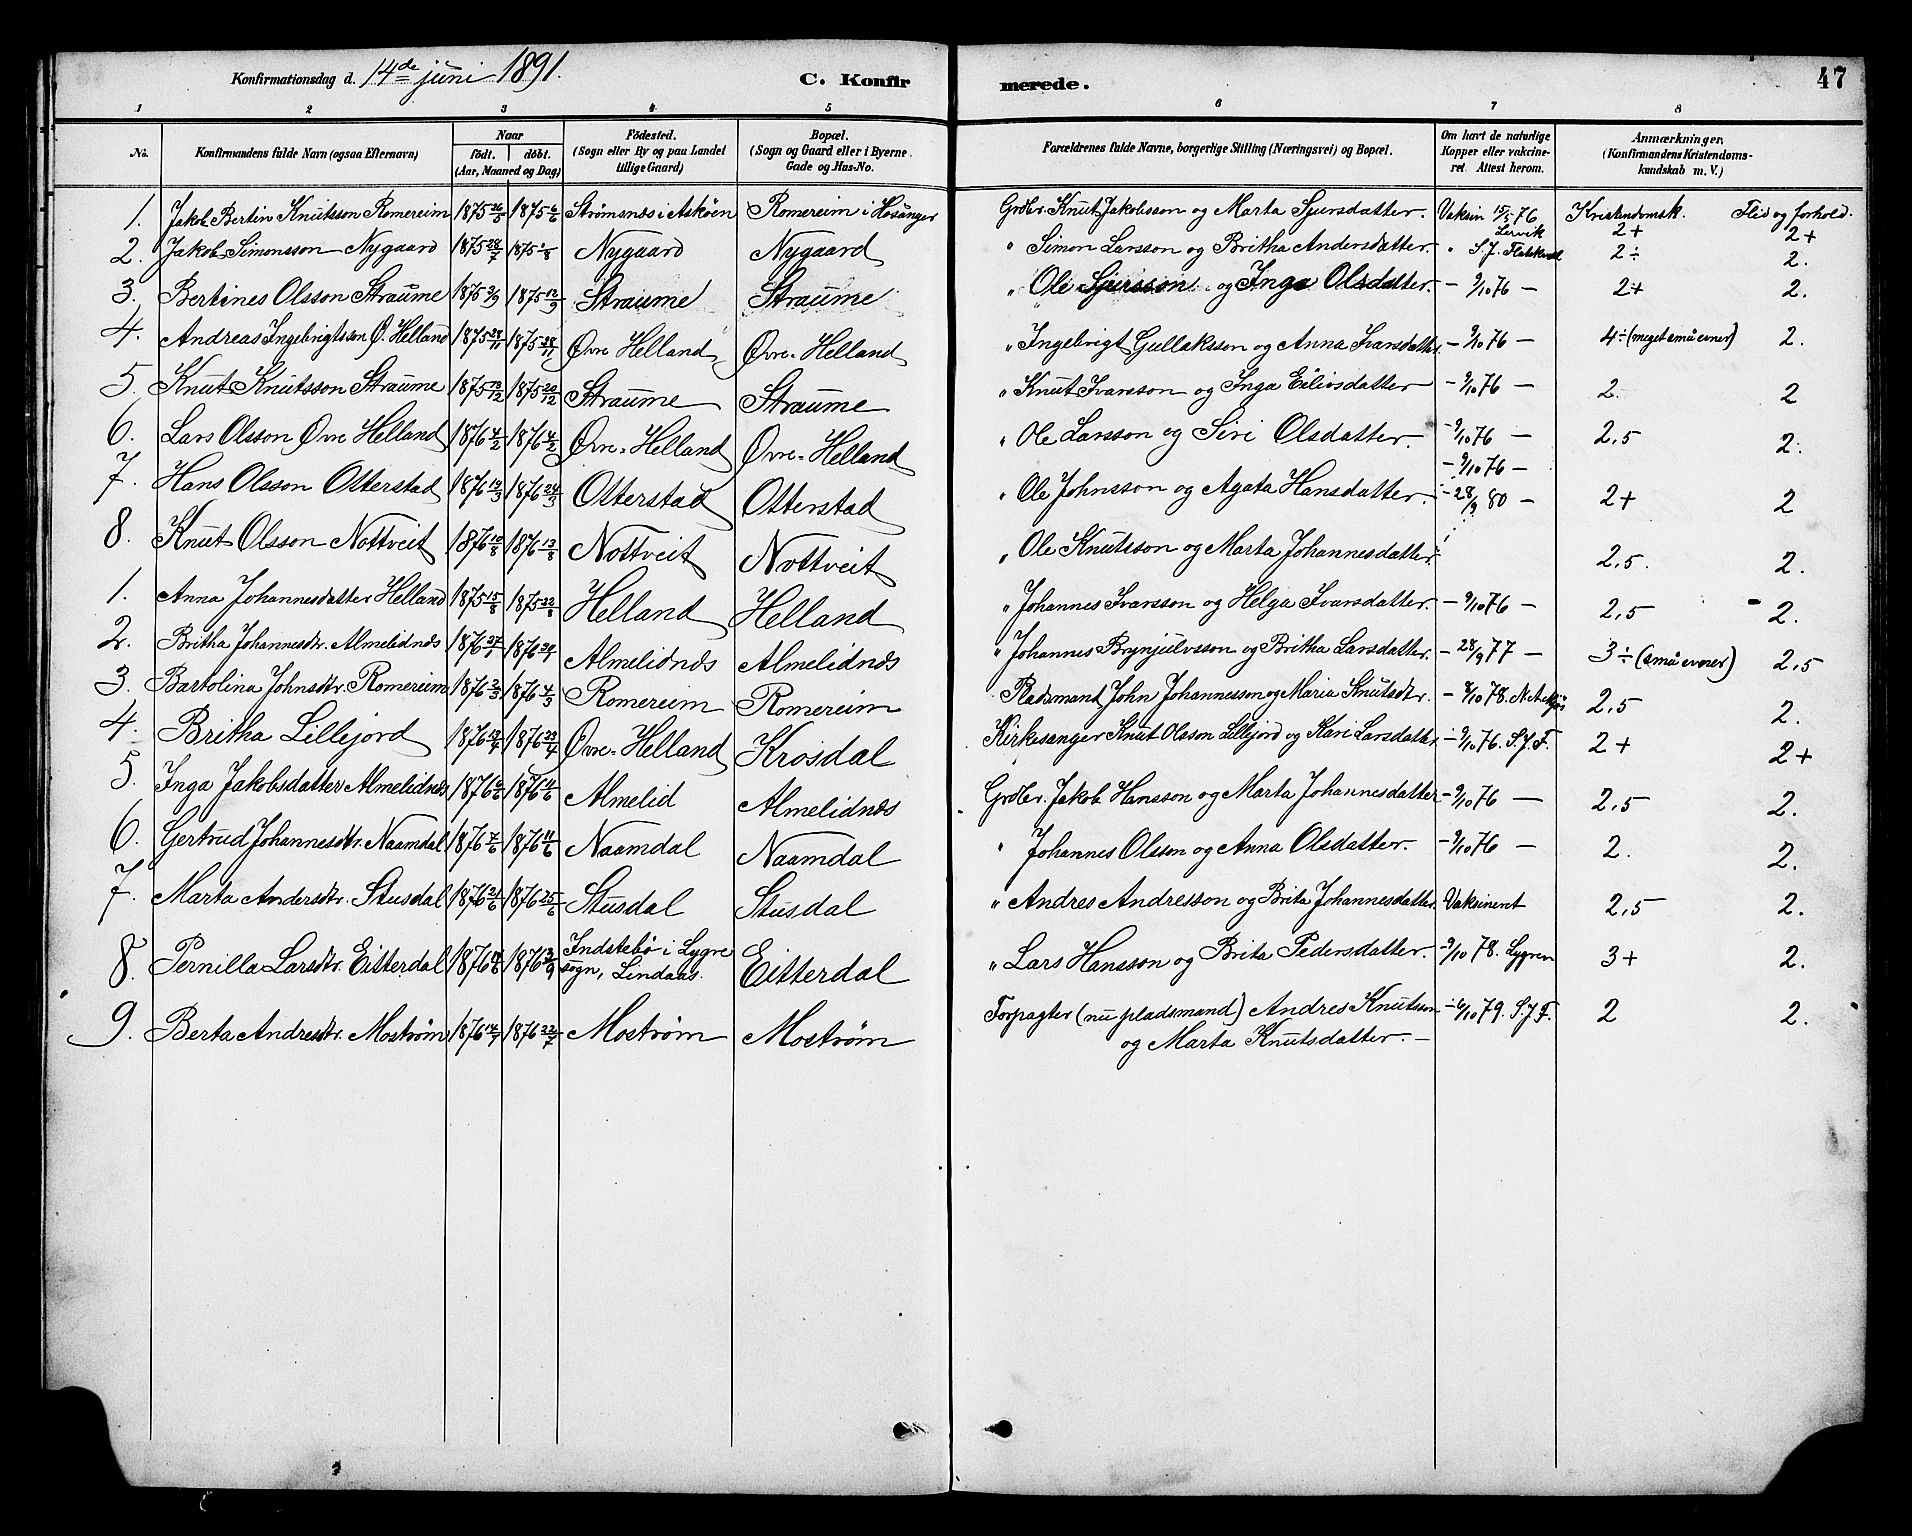 Konfirmationsdag d. 14de juni 1891.
C. Konfir merede.
47
1 2 3 4 5 6 7 8
No. Konfirmandens fulde Navn (ogsaa Efternavn) Naar født. døbt. (Aar, Maaned og Dag) Fødested. (Sogn eller By og paa Landet tillige Gaard) Bopæl. (Sogn og Gaard eller i Byerne Gade og Hus-No. Forældrenes fulde Navne, borgerlige Stilling (Næringsvei) og Bopæl. Om havt de naturlige Kopper eller vakcineret. Attest herom. Anmærkninger. (Konfirmandens Kristendomskundskab m. V.)
Kristendomsk. Flid og forhold.
1. Jakob Bertin Knutsson Romereim 1875 26/5 1875 6/6 Strømsnes i Askøen Romereim i Hosanger Grdbr. Knut Jakobsson og Marta Sjursdatter. Vaksin 15/5 76 Lervik 2+ 2+
2. Jakob Simonsson Nygaard 1875 28/7 1875 1/8 Nygaard Nygaard " Simon Larsson og Britha Andersdatter. " S. J. 2÷ 2.
3. Bertines Olsson Straume 1875 2/9 1875 12/9 Straume Straume " Ole Sjursson og Inga Olsdatter. - 9/10 76 - 2+ 2.
4. Andreas Ingebrigtsson Ø. Helland 1875 28/11 1875 28/11 Øvre Helland Øvre-Helland " Ingebrigt Gullaksson og Anna Ivarsdatter - 9/10 76 - 4÷ (meget små evner) 2.
5. Knut Knutsson Straume 1875 13/12 1875 20/12 Straume Straume " Knut Ivarsson og Inga Eilivsdatter - 9/10 76 - 2. 2
6. Lars Olsson Øvre Helland 1876 4/2 1876 4/2 Øvre-Helland Øvre-Helland " Ole Larsson og Siri Olsdatter. - 9/10 76 - 2,5 2.
7. Hans Olsson Otterstad 1876 12/3 1876 24/3 Otterstad Otterstad " Ole Johnsson og Agata Hansdatter. - 9/10 76 - - 28/9 80 - 2+ 2
8. Knut Olsson Nottveit 1876 10/8 1876 13/8 Nottveit Nottveit " Ole Knutsson og Marta Johannesdatter. 2,5. 2.
1. Anna Johannesdatter Helland 1875 15/8 1875 22/8 Helland Helland " Johannes Ivarsson og Helga Ivarsdatter. - 9/10 76 - 2,5 2.
2. Britha Johannesdtr. Almelidnæs 1876 27/1 1876 Almelidnæs Almelidnæs " Johannes Brynjulvsson og Britha Larsdatter. - 28/9 77 - 3÷ (små evner) 2,5
3. Bartolina Johnsdtr. Romereim 1876 2/3 1876 4/3 Romereim Romereim Pladsmand John Johannesson og Maria Knutsdtr. - 9/10 78. 2,5 2.
4. Britha Lillejord 1876 12/4 1876 23/4 Øvre-Helland Krosdal Kirkesanger Knut Olsson Lillejord og Kari Larsdatter. - 9/10 76. S. J. F. 2+ 2+
5. Inga Jakobsdatter Almelidnæs 1876 6/6 1876 11/6 Almelid Almelidnæs Grdbr. Jakob Hansson og Marta Johannesdatter - 9/10 76 - 2,5 2.
6. Gertrud Johannesdtr. Naamdal 1876 7/6 1876 11/6 Naamdal Naamdal " Johannes Olsson og Anna Olsdatter. - 9/10 76 - 2. 2.
7. Marta Andersdtr. Stusdal 1876 21/6 1876 25/6 Stusdal Stusdal " Andres Andresson og Brita Johannesdatter. Vaksinent 2,5 2.
8. Pernilla Larsdtr. Eitterdal 1876 1876 3/9 Indstebø i Lygre sogn, Lindaas. Eitterdal " Lars Hansson og Brita Pedersdatter. - 9/10 78. Lygren 3+ 2.
9. Berta Andresdtr. Mostrøm 1876 14/7 1876 22/7 Mostrøm Mostrøm Forpagter (nu pladsmand) Andres Knutsson og Marta Knutsdatter. - 6/10 79. S. J. F. 2 2.